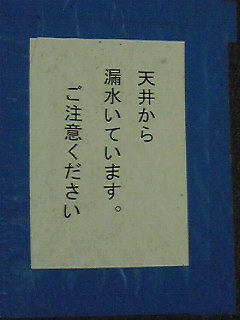 天井から
漏水いています。
ご注意ください